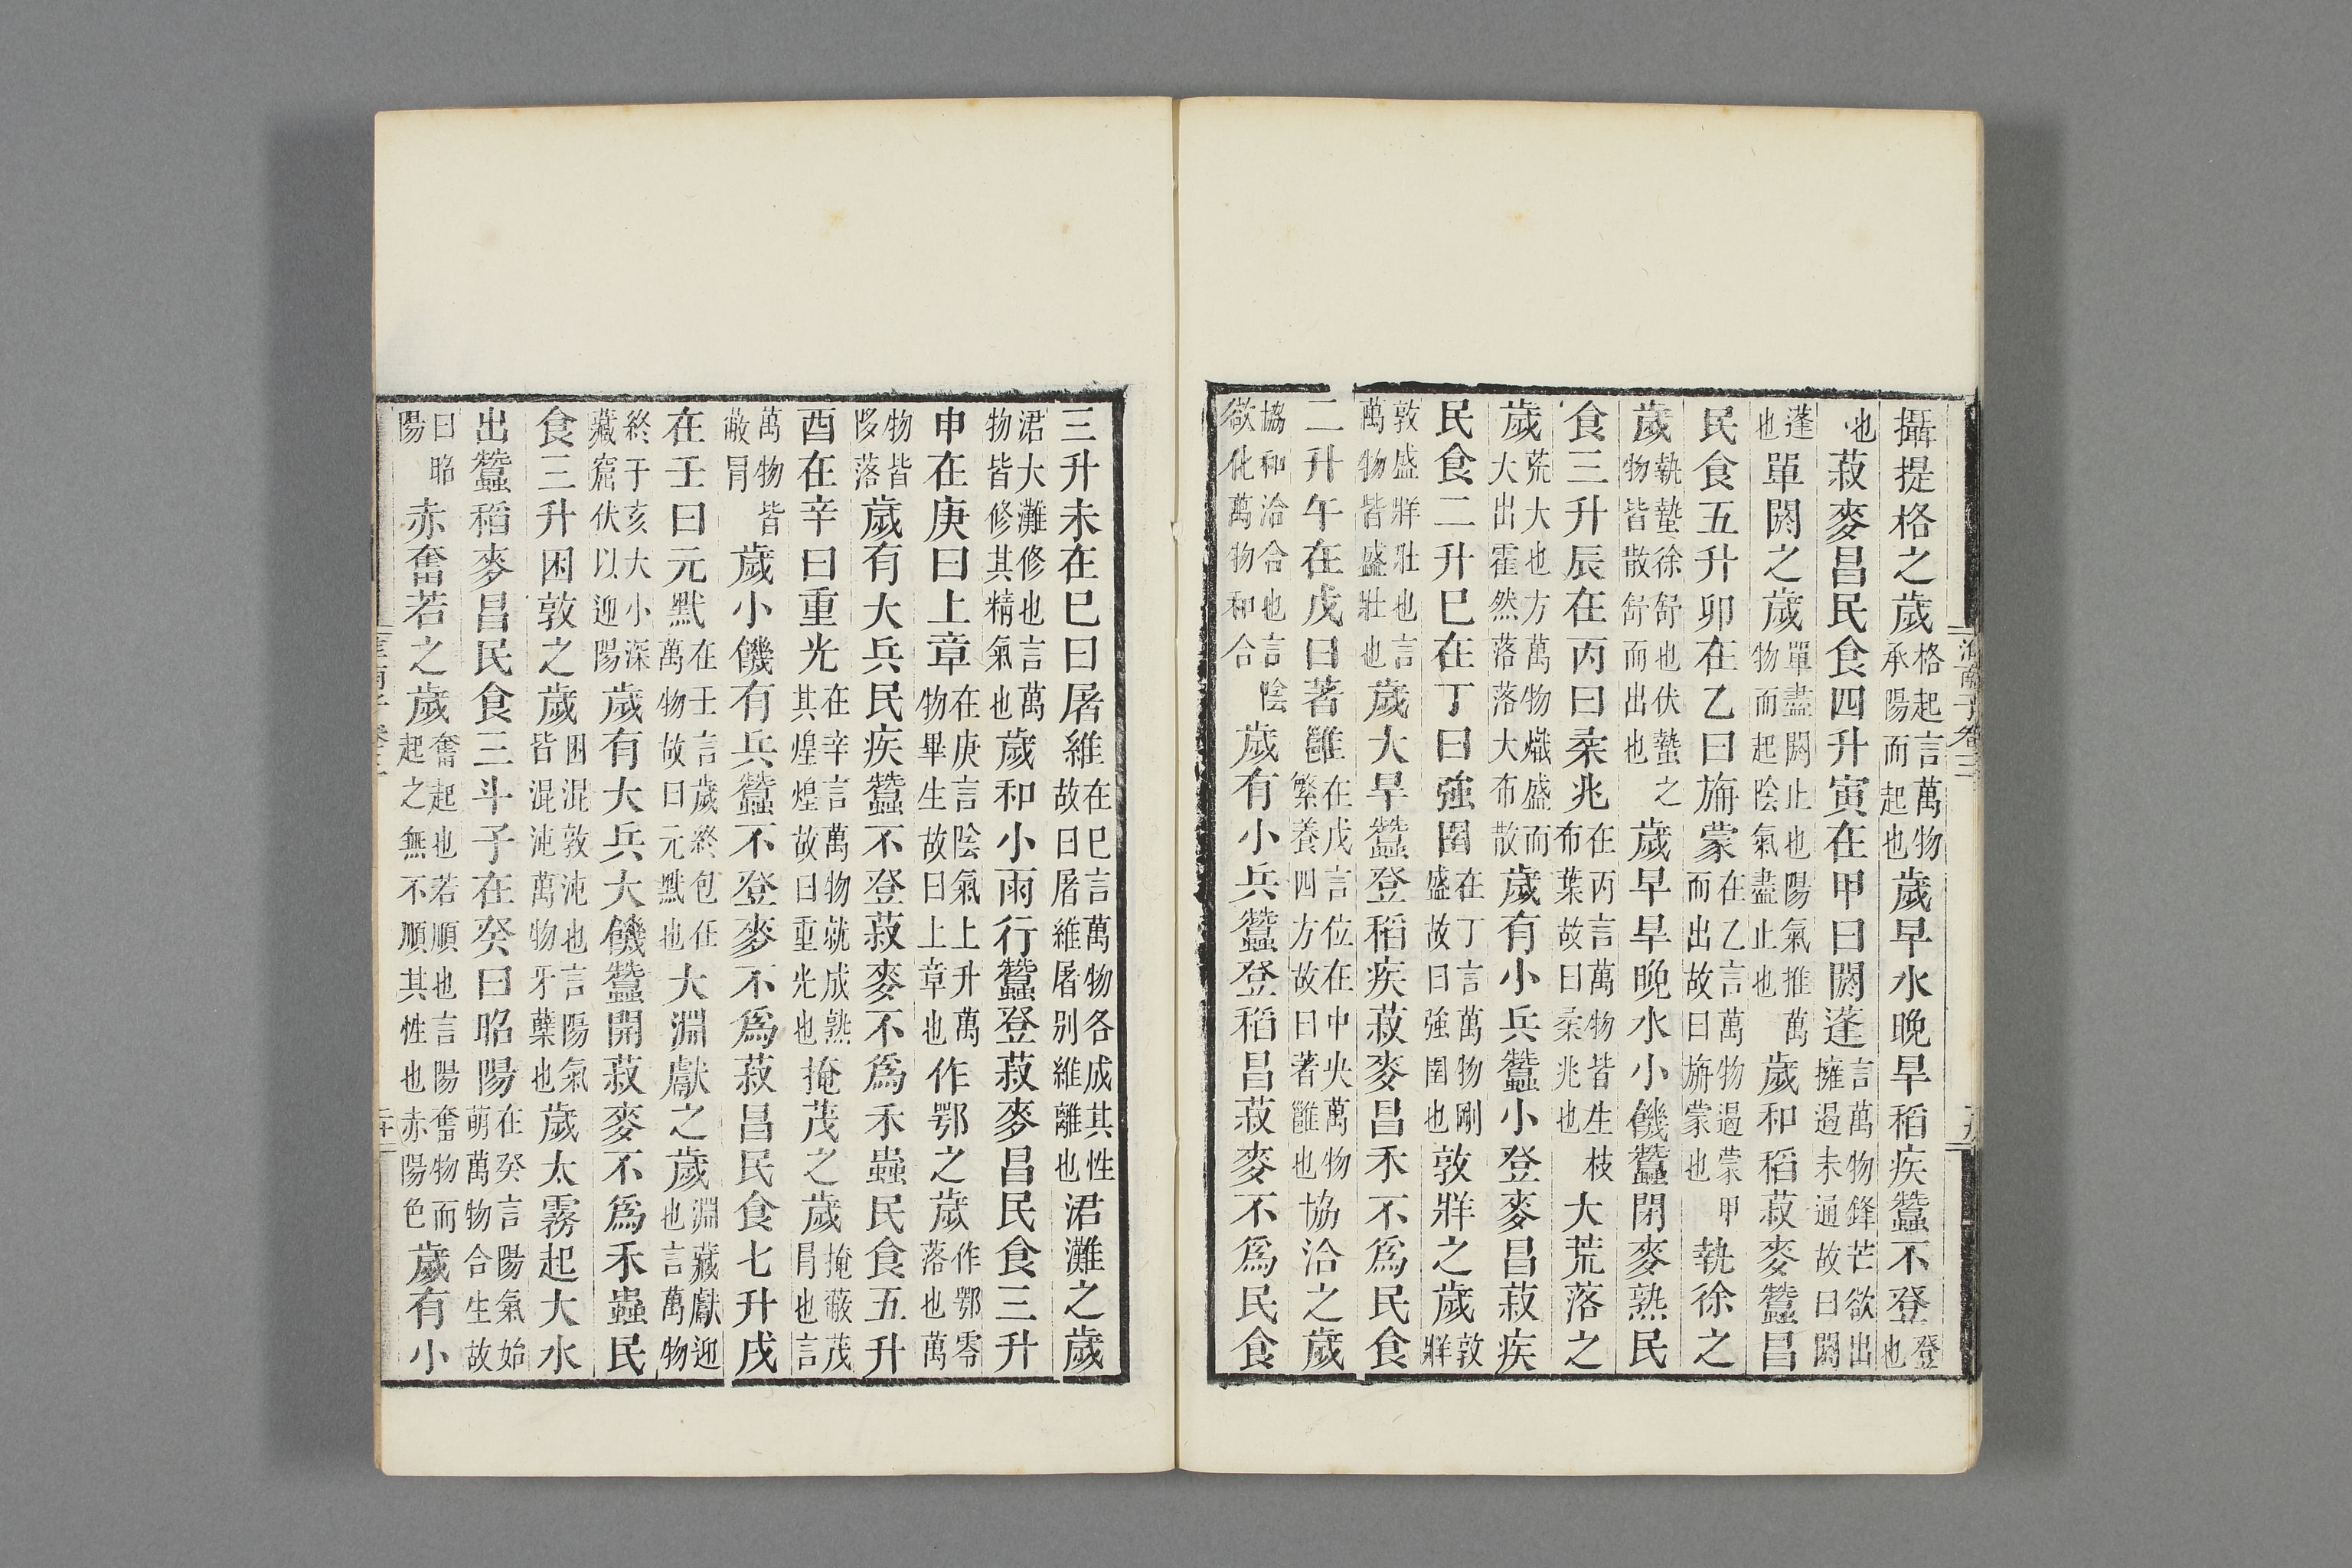 攝提格之歲格起言萬物承陽而起也歲早水晚旱稻疾蠶不登登也
也菽麥昌民食四升寅在甲曰閼蓬言萬物鋒芒欲出擁遏未通故曰閼
蓬也單閼之歲單盡閼止也陽氣推萬物而起陰氣盡止也歲和稻菽麥蠶昌
民食五升卯在乙曰旃蒙在乙言萬物遏蒙甲而出故曰旃蒙也執徐之
歲執蟄徐舒也伏蟄之物皆散舒而出也歲早旱晚水小饑蠶閉麥熟民
食三升辰在丙曰柔兆在丙言萬物皆生枝布葉故曰柔兆也大荒落之
歲荒大也方萬物熾盛而大出霍然落落大布散歲有小兵蠶小登麥昌菽疾
民食二升巳在丁曰強圉在丁言萬物剛盛故曰強圉也敦牂之歲敦牂
敦盛牂壯也言萬物皆盛壯也歲大旱蠶登稻疾菽麥昌禾不爲民食
二升午在戊曰著雝在戊言位在中央萬物繁養四方故曰著雝也協洽之歲
協和洽合也言陰欲化萬物和合歲有小兵蠶登稻昌菽麥不爲民食
三升未在巳曰屠維在巳言萬物各成其性故曰屠維屠别維離也涒灘之歲
涒大灘修也言萬物皆修其精氣也歲和小雨行蠶登菽麥昌民食三升
申在庚曰上章在庚言陰氣上升萬物畢生故曰上章也作鄂之歲作鄂零落也萬
物皆陊落歲有大兵民疾蠶不登菽麥不爲禾蟲民食五升
酉在辛曰重光在辛言萬物就成熟其煌煌故曰重光也掩茂之歲掩蔽茂冒也言
萬物皆蔽冒歲小饑有兵蠶不登麥不爲菽昌民食七升戌
在壬曰元黓在壬言歲終包任萬物故曰元黓也大淵獻之歲淵藏獻迎也言萬物
終于亥大小深藏窟伏以迎陽歲有大兵大饑蠶開菽麥不爲禾蟲民
食三升困敦之歲困混敦沌也言陽氣皆混沌萬物牙蘖也歲大霧起大水
出蠶稻麥昌民食三斗子在癸曰昭陽在癸言陽氣始萌萬物合生故
曰昭陽赤奮若之歲奮起也若順也言陽奮物而起之無不順其性也赤陽色歲有小
淮南子卷三